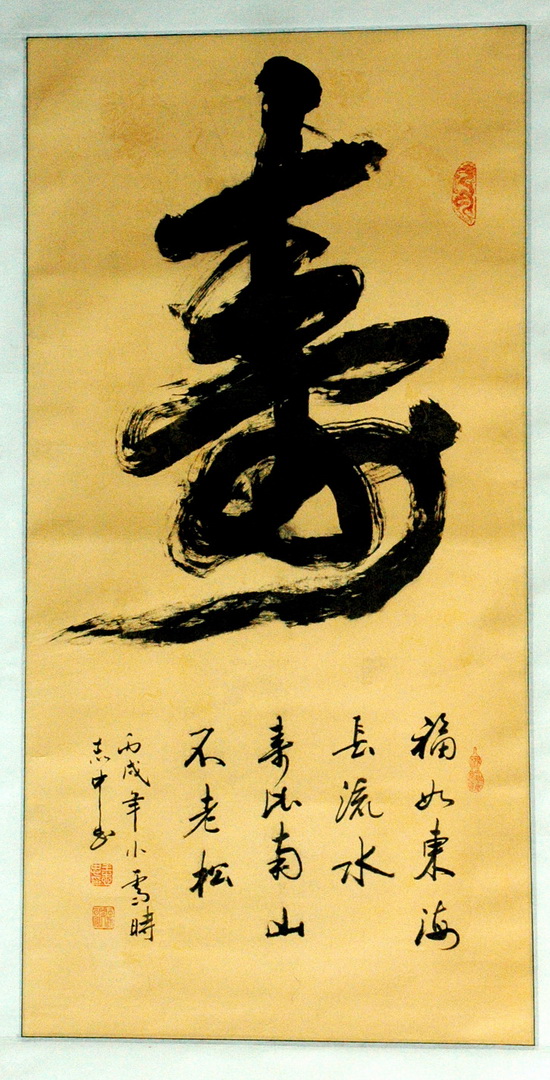 寿
福如東海
長流水
寿比南山
不老松
丙戌年小雪時
志中书